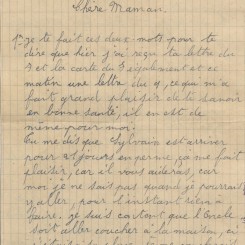 Chère Maman.
je te fait ces deux mots pour te
dire que hier j'ai reçu ta lettre du
3 et la carte du 3 également et ce
matin une lettre du 4, ce qui m'a
fait grand plaisir de te savoir
en bonne santé, il en est de
même pour moi.
Tu me dis que Sylvain est arriver
pour 21 jours en perme, ça me fait
plaisir, car il vous aideras, car
moi je ne sais pas quand je pourrais
y aller, pour l'instant rien à
faire. je suis content que l'Oncle
soit aller coucher à la maison, ci